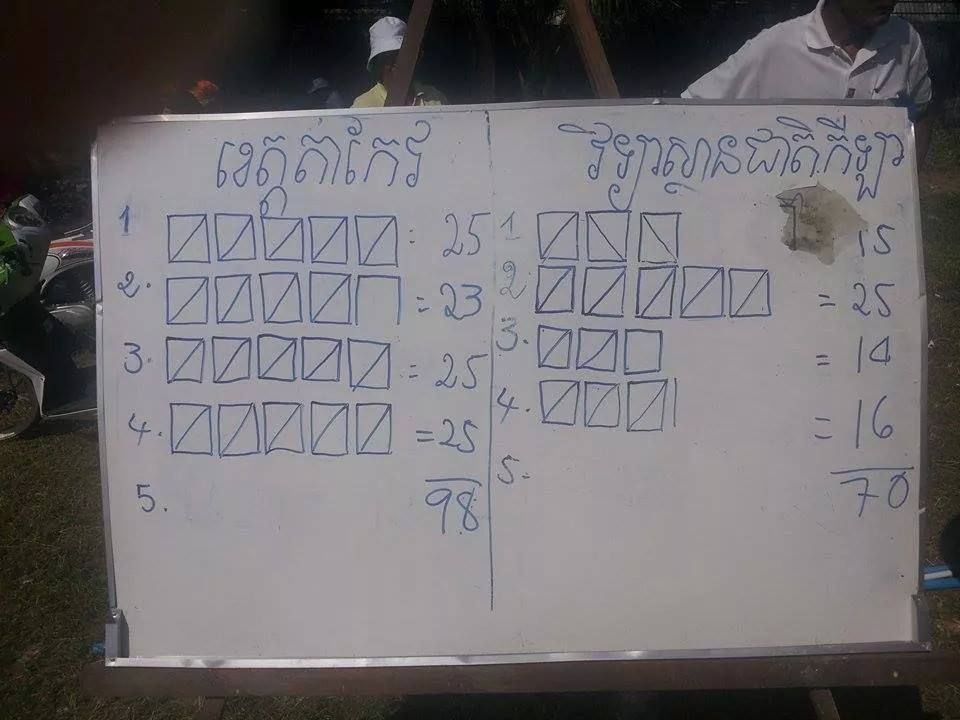 ខេត្តតាកែវ
1 : 25
2. = 23
3. = 25
4. = 25
98
5.
វិទ្យាស្ថានជាតិកីឡា
1 15
2 = 25
3. = 14
4. = 16
5.
70